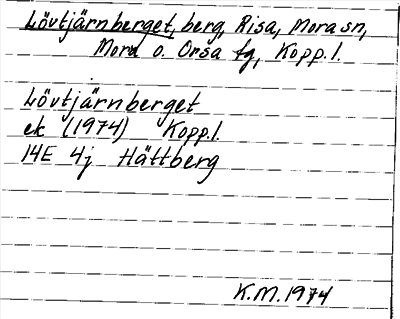 Lövtjärnberget, berg, Risa, Mora sn,
Mora o. Orsa tg, Kopp. l.
Lövtjärnberget
ek (1974) Kopp.l.
14E 4j Hättberg
K.M. 1974